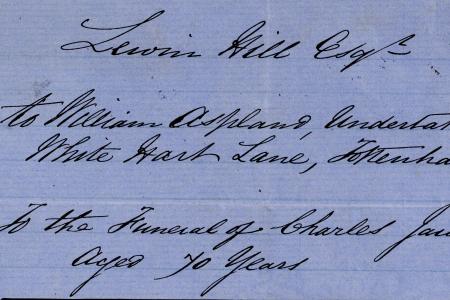 Lewin Hill Esqr
to William Aspland, Underta
White Hart Lane, Tottenha
To the Funeral of Charles
Aged 70 Years